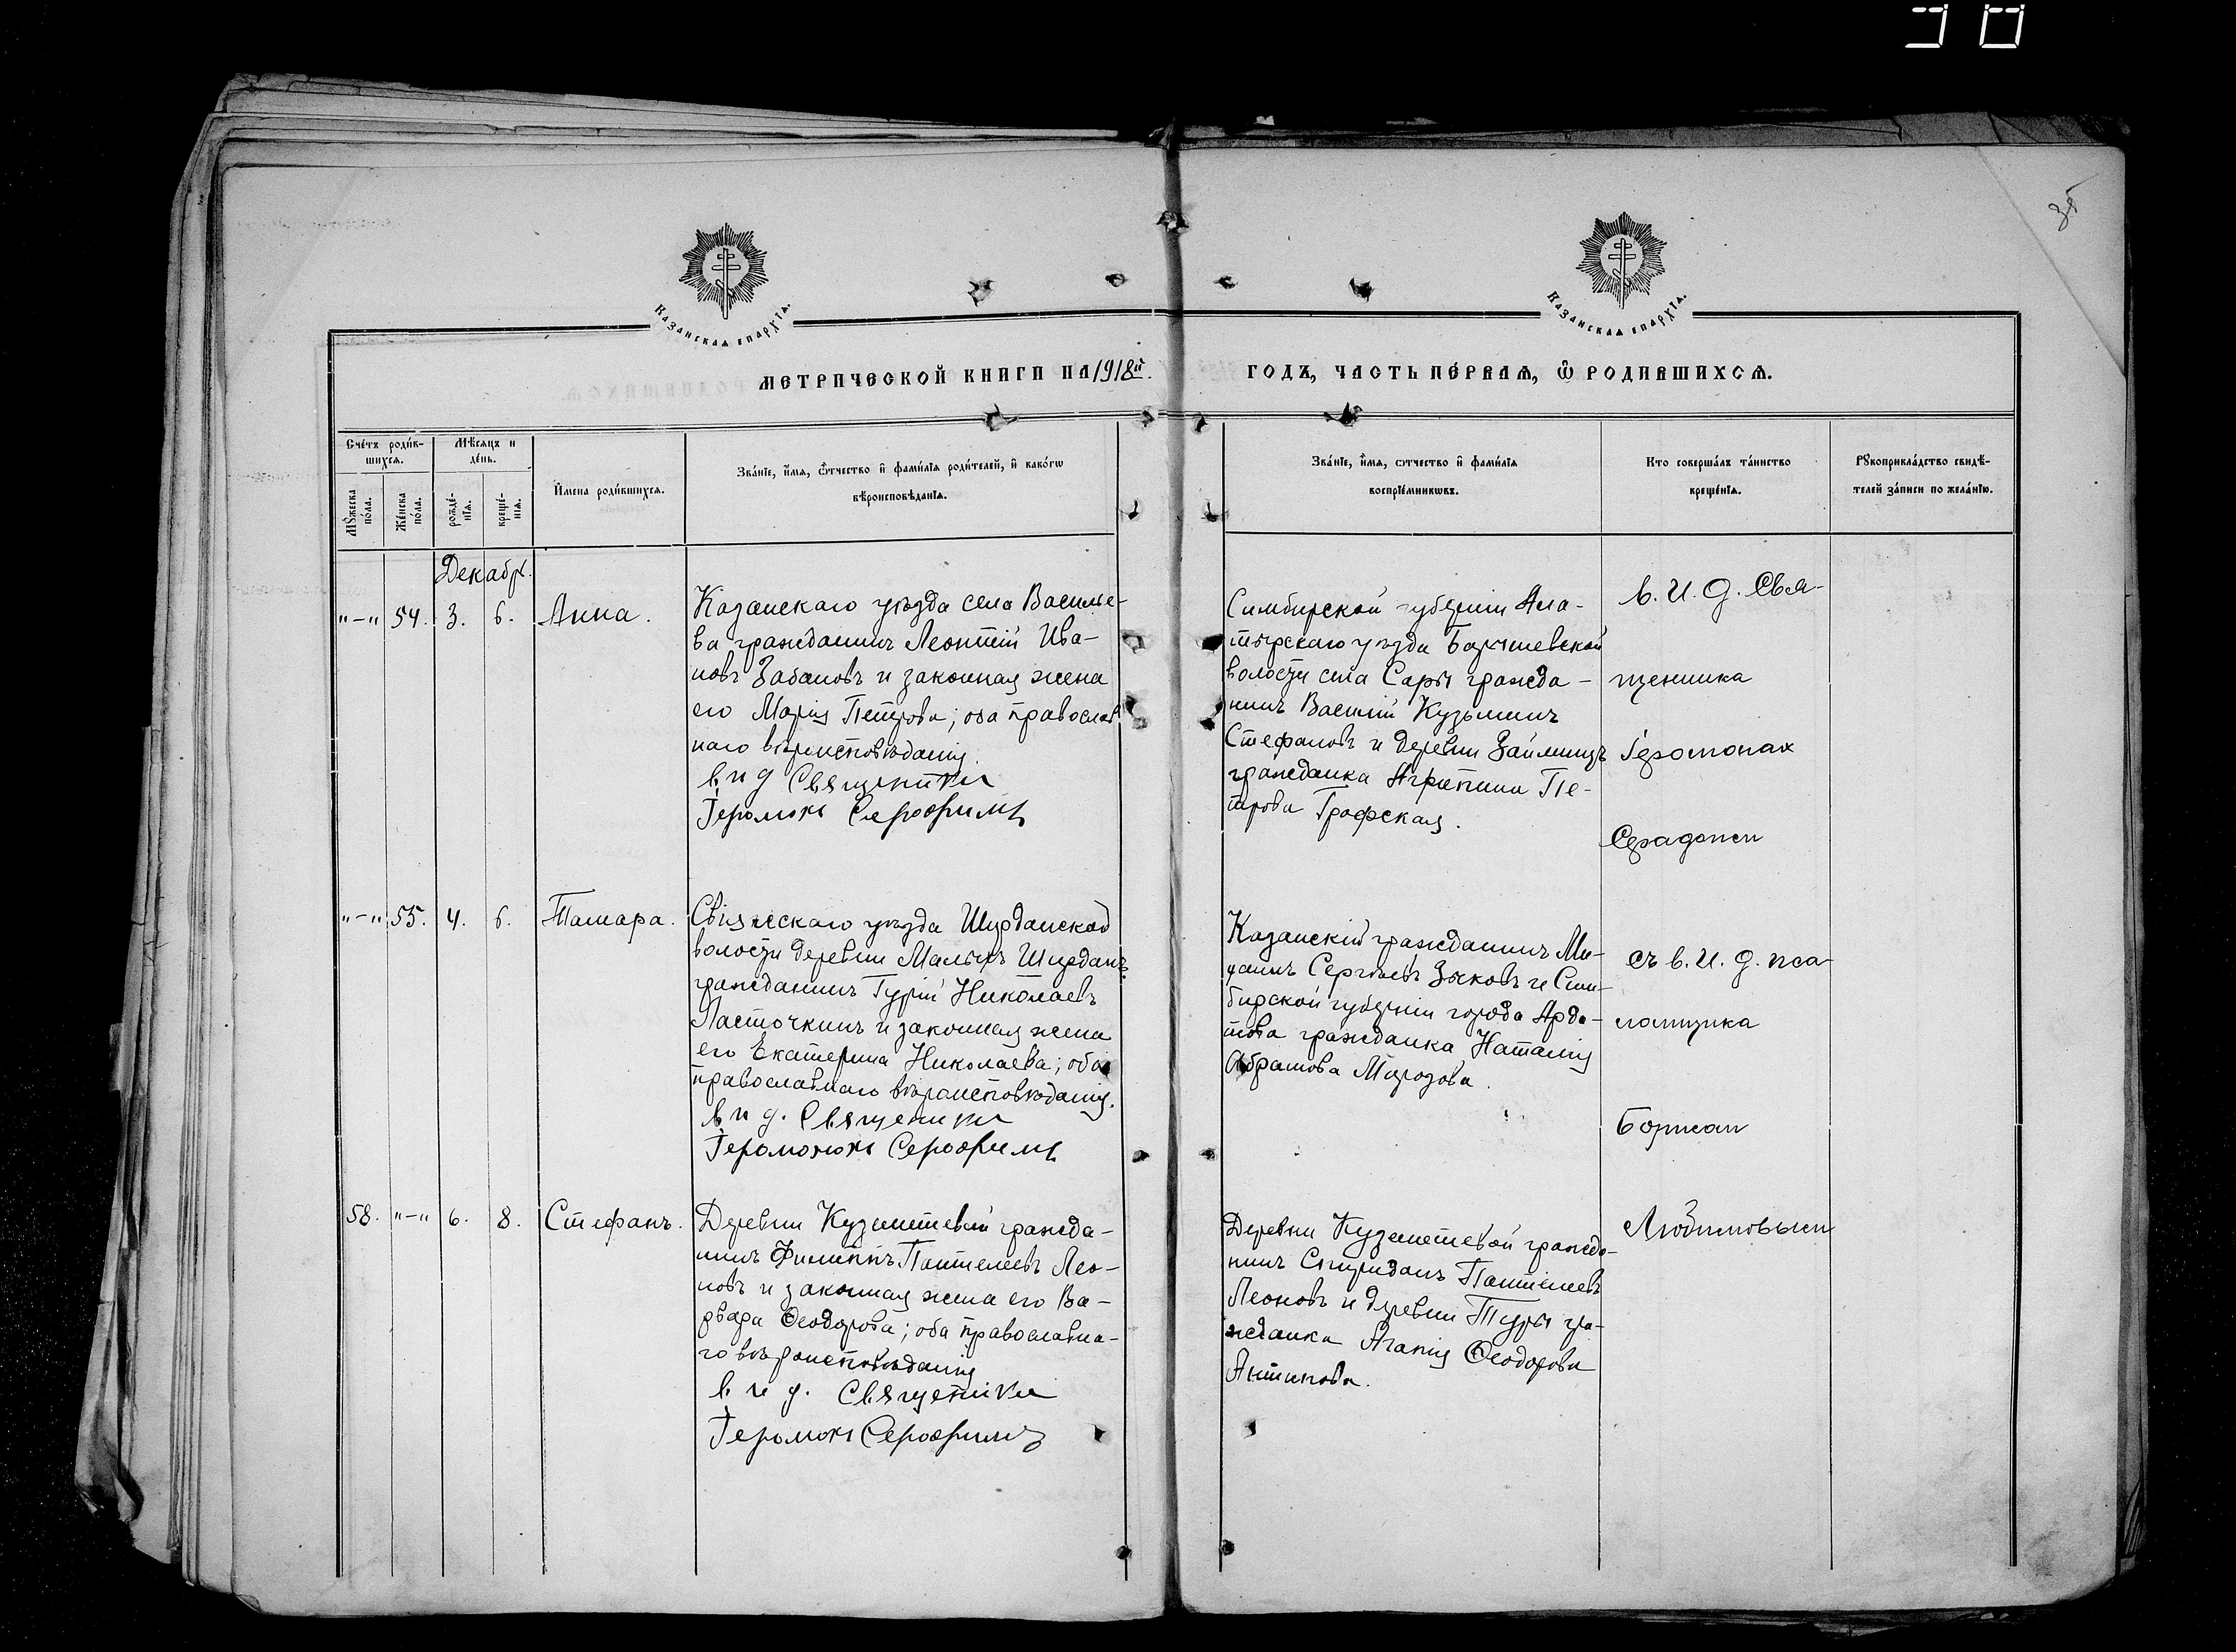 35
Казанская епархїа.
Казанская епархїа.
Метрической книги на 1918й.
годъ, часть пе́рвая, ѡ родившихся.
Сче́тъ роди́в-
шихся.
Мѣсяцъ и
де́нь.
Мꙋ́жеска
по́ла.
Же́нска
по́ла.
рожде́-
нїя.
креще́-
нїя.
И́мена роди́вшихся.
Зва́нїе, и́мя, ѿтчество и҆ фами́лїя роди́телей, и҆ како́гѡ
вѣроисповѣ́данїя.
Зва́нїе, и́мя, ѿтчество и҆ фами́лїя
воспрїе́мникѡвъ.
Кто соверша́лъ та́инство
креще́нїя.
Рꙋкоприкла́дство свидѣ́-
телей за́писи по жела́нїю.
Декабр.
"-" 54. 3. 6. Анна.
Казанскаго уѣзда села Василье-
ва гражданинъ Леонтій Ива-
новъ Забановъ и законная жена
его Марія Петрова; оба православ
наго вѣроисповѣданія.
в и д Священника
Іеромонах Серафимъ
Симбирской губерніи Ала-
тырскаго уѣзда Барышевской
волости села Сары гражда-
нинъ Василій Кузьминъ
Стефановъ и деревни Займищъ
гражданка Агрипина Пе-
трова Графская.
в. И. д. Свя-
щенника
Іеромонах
Серафим
"-" 55. 4. 6. Тамара.
Свіяжскаго уѣзда Ширданской
волости деревни Малыхъ Ширданъ
гражданинъ Гурій Николаевъ
Ласточкинъ и законная жена
его Екатерина Николаева; оба
православнаго вѣроисповѣданія.
в и д. Священника
Іеромонахъ Серафимъ
Казанскій гражданинъ Ми-
хаилъ Сергѣевъ Зыковъ и Сим-
бирской губерніи города Арда-
това гражданка Наталія
Абрамова Морозова.
съ в. И. д. пса-
ломщика
Борисом
Любимовым
58. "-" 6. 8. Стефанъ.
Деревни Куземетевой гражда-
нинъ Филиппъ Пантелеевъ Лео-
новъ и законная жена его Ва-
рвара Ѳеодорова; оба православна-
го вѣроисповѣданія
в и д. Священника
Іеромонах Серафимъ
Деревни Куземетевой гражда-
нинъ Спиридонъ Пантелеевъ
Леоновъ и деревни Туры гра-
жданка Агапія Ѳеодорова
Антипова.